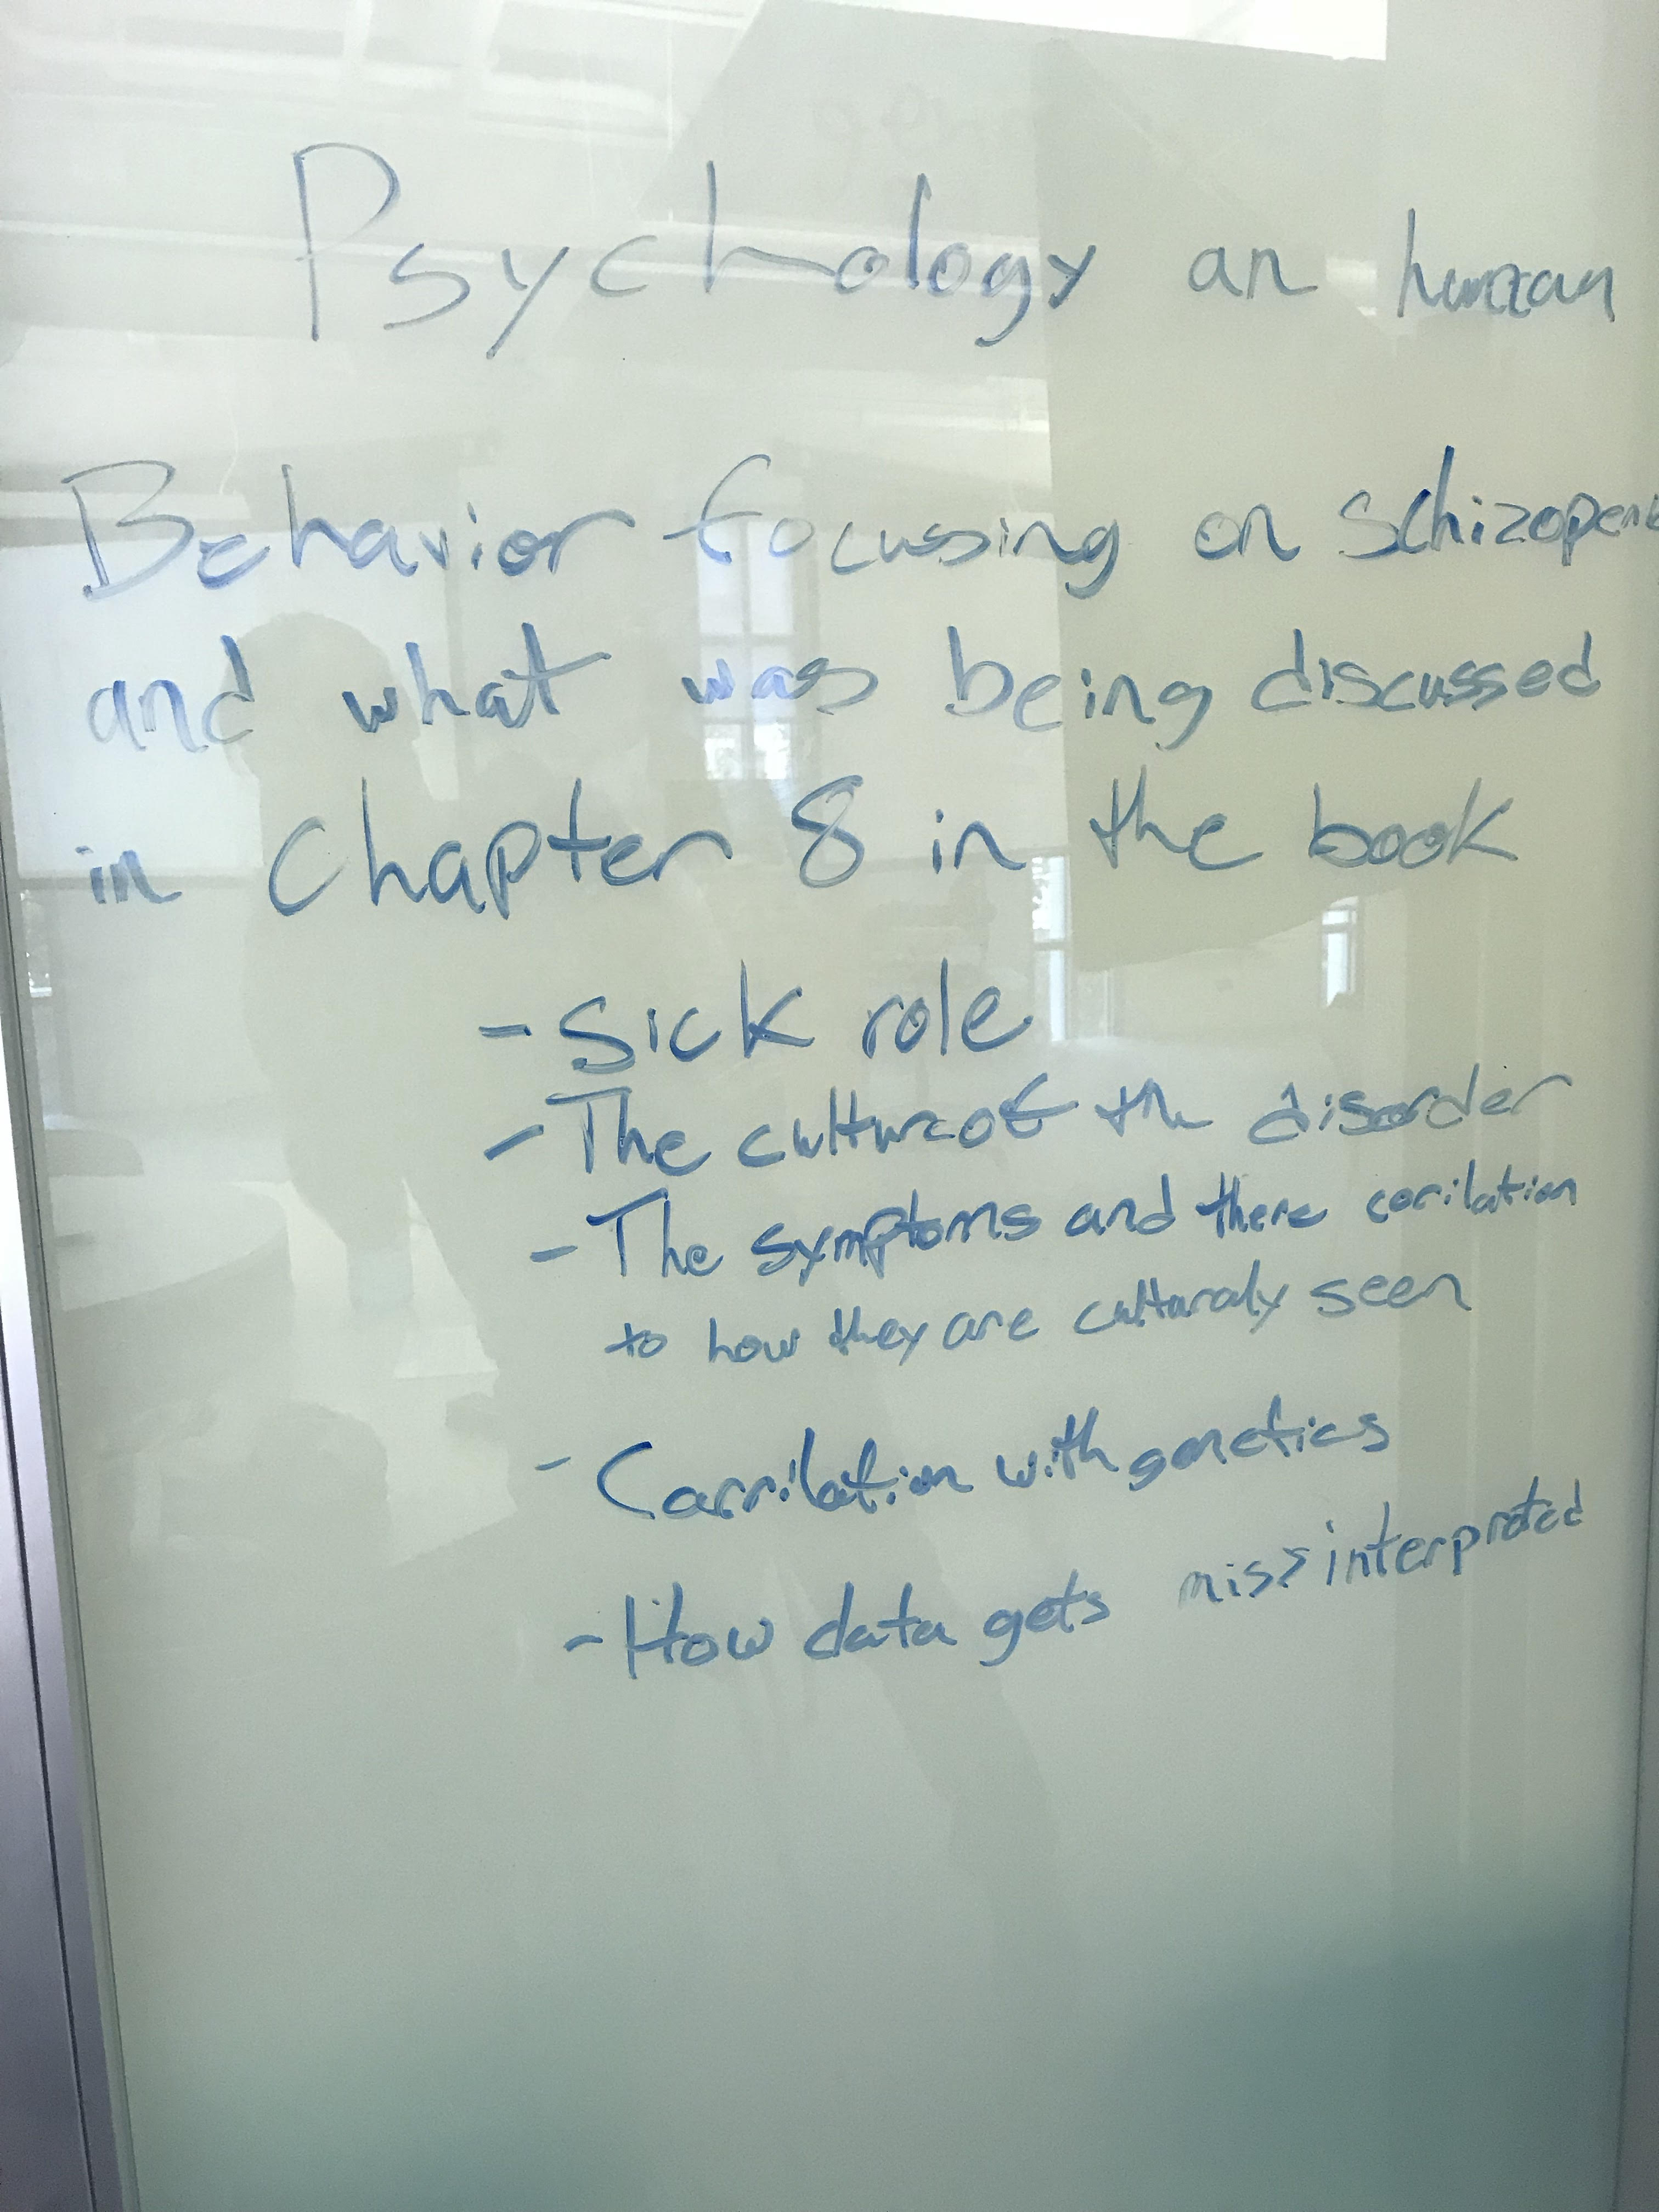 Psychology an human
Behavior focussing on schizopen
and what was being discussed
in Chapter 8 in the book
- Sick role
- The culture of the disorder
- The symptoms and there corilation
to how they are culturaly seen
- Carrilation with genetics
- How data gets miss interprated